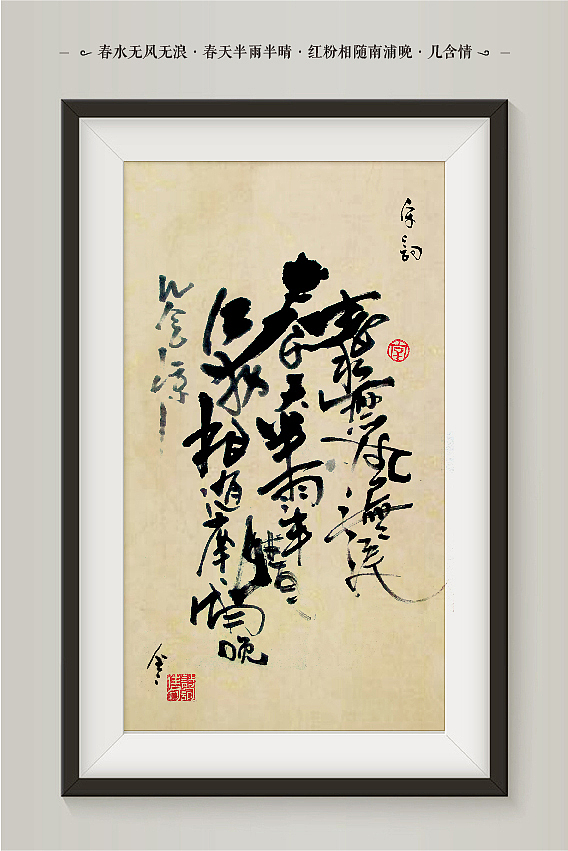 春水无风无浪·春天半雨半晴·红粉相随南浦晚·几含情
宋词
春水無风無浪
春天半雨半晴
红粉相随南浦晚
几含情